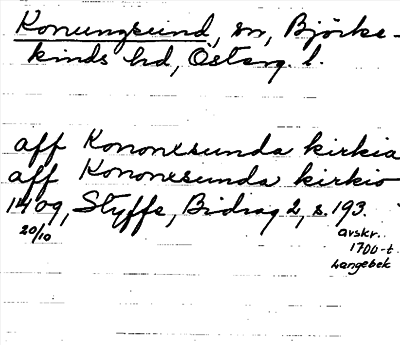 Konungsund, sn, Björke-
kinds hd, Österg. l.
aff Kononxsunda kirkia
aff Kononxsunda kirkio
1409, Styffe, Bidrag 2, s. 193.
20/10
avskr.
1700-t.
Langebek